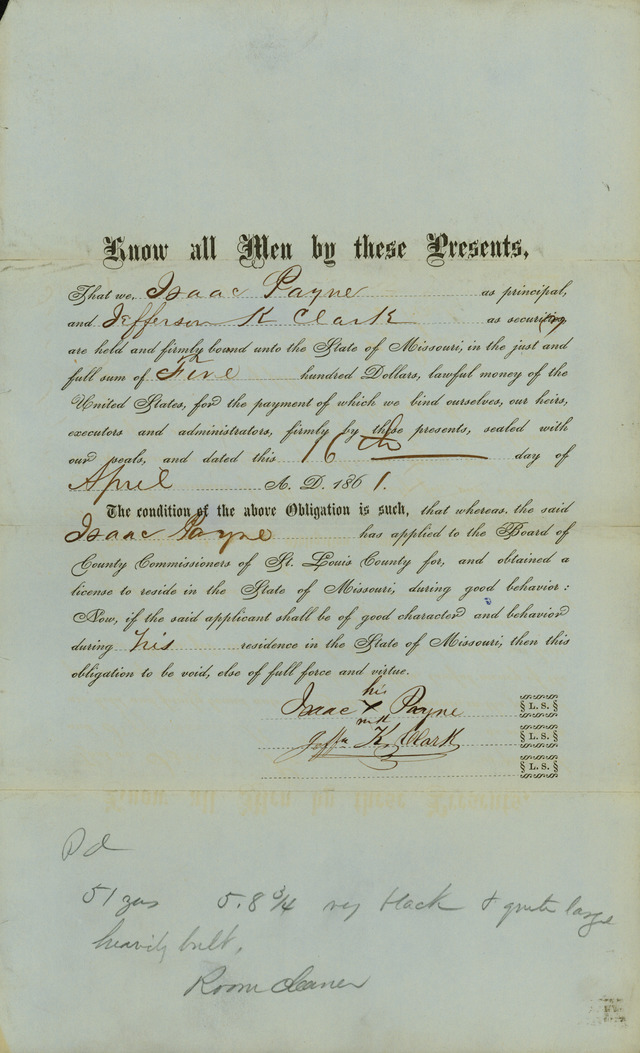 Know all Men by these Presents,
That we, Isaac Payne as principal,
and Jefferson K Clark as security
are held and firmly bound unto the State of Missouri, in the just and
full sum of Five hundred Dollars, lawful money of the
United States, for the payment of which we bind ourselves, our heirs,
executors and administrators, firmly by these presents, sealed with
our seals, and dated this 16th day of
April A. D. 1861.
The condition of the above Obligation is such, that whereas the said
Isaac Payne has applied to the Board of
County Commissioners of St. Louis County for, and obtained a
license to reside in the State of Missouri, during good behavior:
Now, if the said applicant shall be of good character and behavior
during his residence in the State of Missouri, then this
obligation to be void, else of full force and virtue.
his
Isaac X Payne § L. S. §
mark
Jeffn K. Clark § L. S. §
§ L. S. §
Pd
51 yrs 5.8 3/4 very black & quite large
heavily built.
Room cleaner